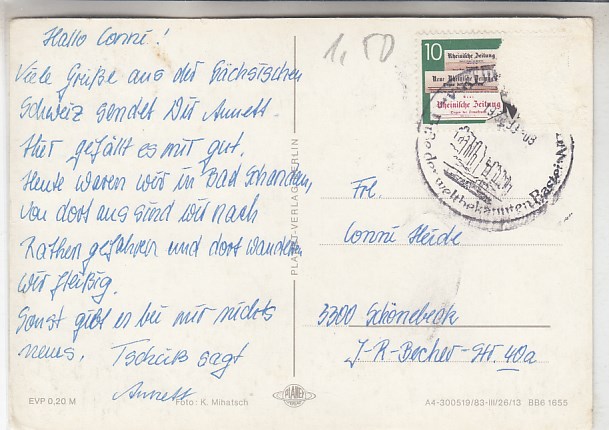 Hallo Conni!
Viele Grüße aus der Sächsischen
Schweiz sendet Dir Annett.
Hier gefällt es mir gut.
Heute waren wir in Bad Schandau,
von dort aus sind wir nach
Rathen gefahren und dort wanderten
wir fleißig.
Sonst gibt es bei mir nichts
neues. Tschüß sagt
Annett
EVP 0,20 M
Foto: K. Mihatsch
PLANET-VERLAG BERLIN
PLANET
1,50
10
Rheinische Zeitung
Neue Rheinische Zeitung
Neue
Rheinische Zeitung
der weltbekannten Bastei
Frl.
Conni Heide
3300 Schönebeck
J-R-Becher-Str. 40a
A4-300519/83-III/26/13 BB6 1655